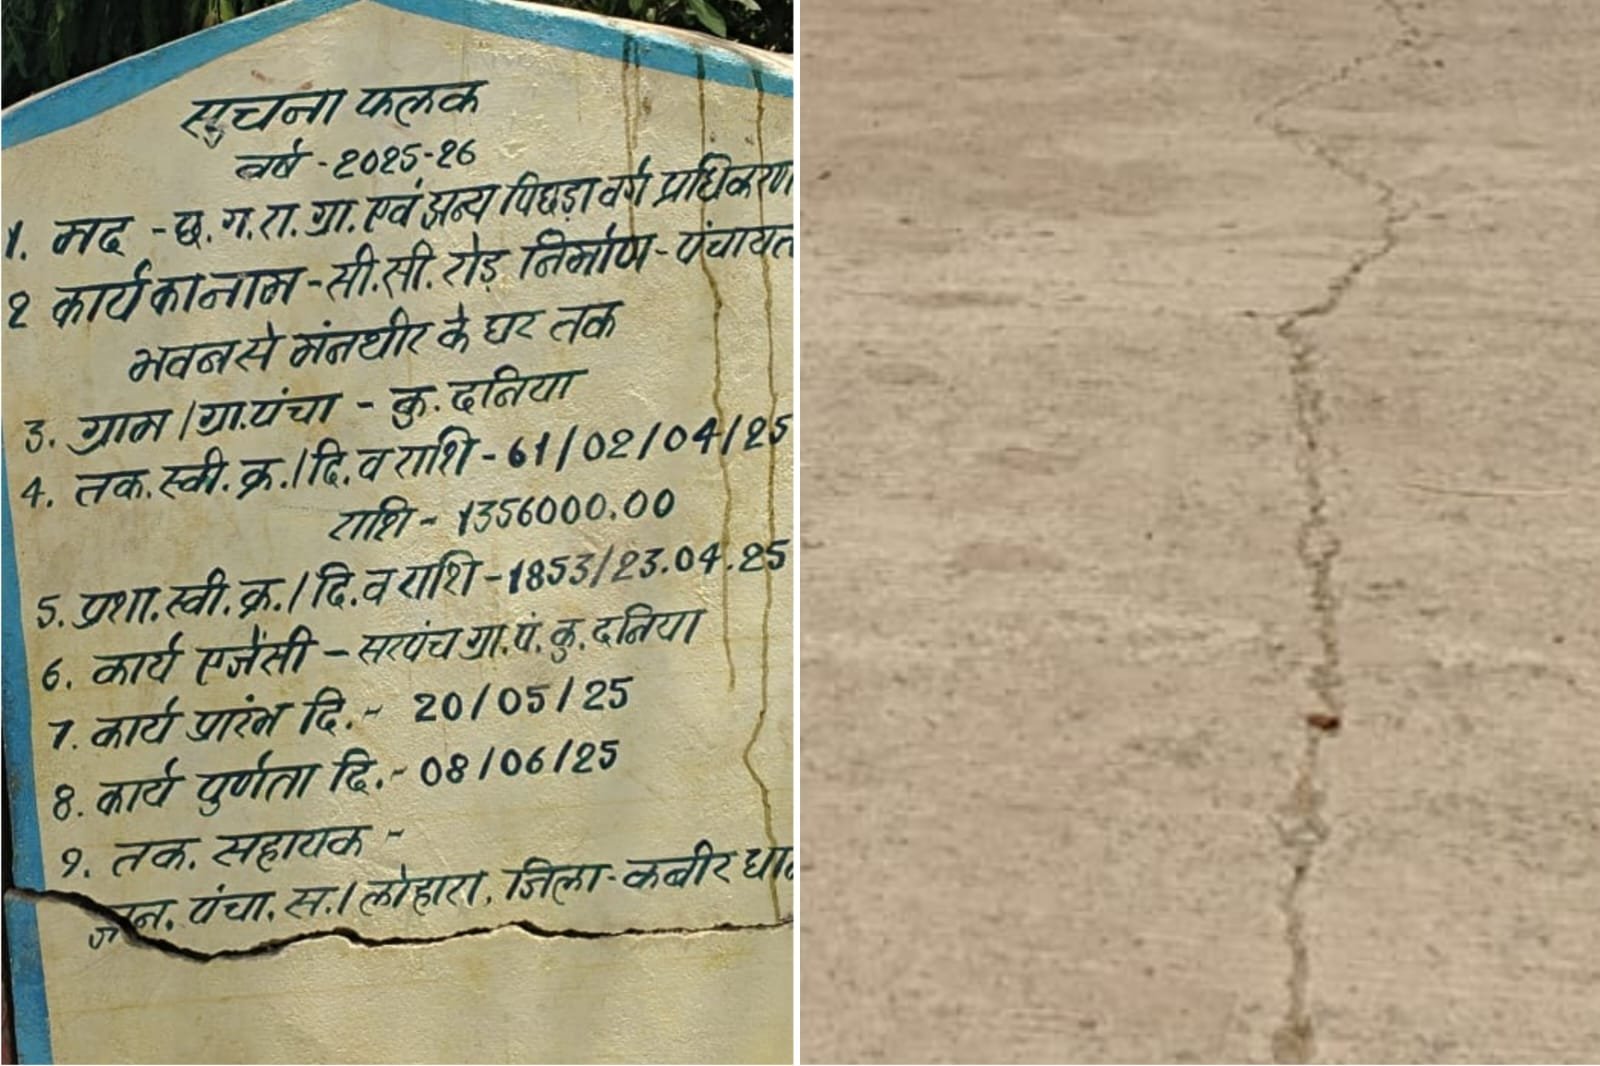 सुचना फलक
वर्ष - 2025-26
1. मद - छ.ग.रा.ग्रा. एवं अन्य पिछड़ा वर्ग प्राधिकरण
2 कार्य का नाम - सी.सी. रोड़ निर्माण - पंचायत
भवन से मंनथीर के घर तक
3. ग्राम / ग्रा.पंचा - कु. दनिया
4. तक. स्वी. क्र. / दि. व राशि - 61/02/04/25
राशि - 1356000.00
5. प्रशा. स्वी. क्र. / दि. व राशि - 1853/23.04.25
6. कार्य एजेंसी - सरपंच ग्रा. पं. कु. दनिया
7. कार्य प्रारंभ दि. - 20/05/25
8. कार्य पुर्णता दि. - 08/06/25
9. तक. सहायक -
जन. पंचा. स. / लोहारा, जिला - कबीरधा